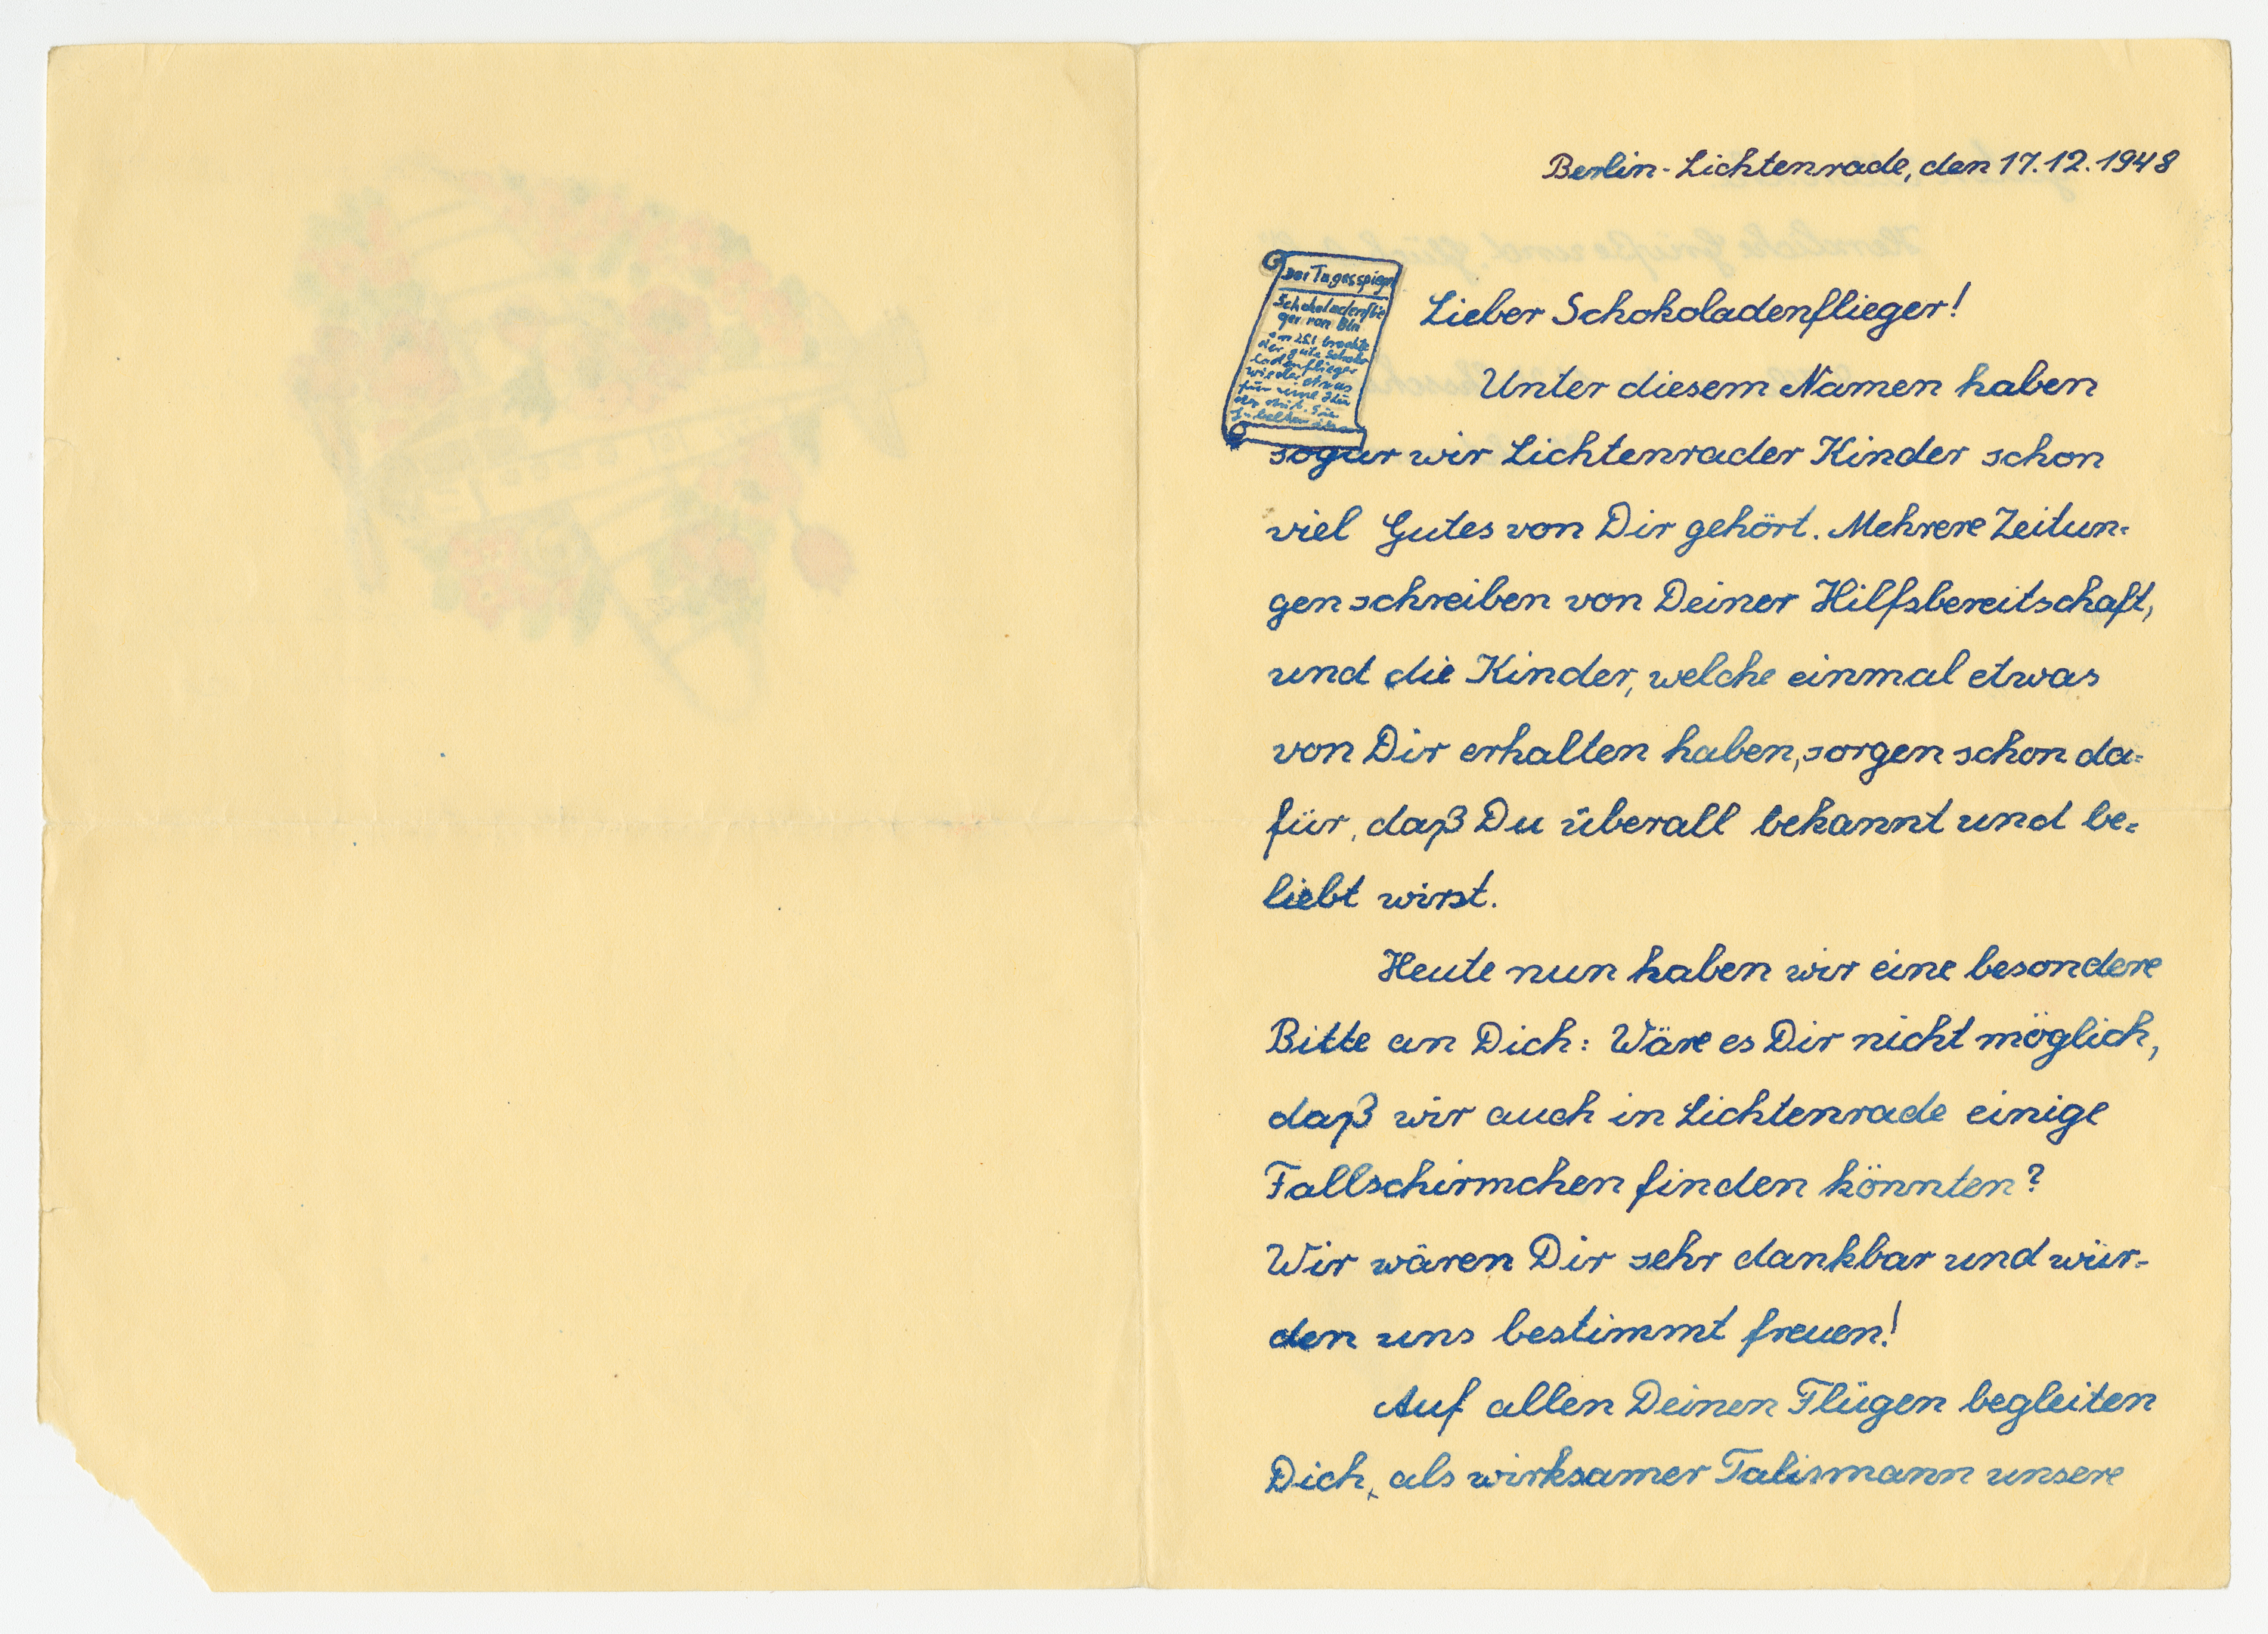 Berlin-Lichtenrade, den 17.12.1948
Der Tagesspiegel
Schokoladenflie
ger von Bln
der gute Schoko
ladenflieger
wieder etwas
Lieber Schokoladenflieger!
Unter diesem Namen haben
sogar wir Lichtenrader Kinder schon
viel Gutes von Dir gehört. Mehrere Zeitun-
gen schreiben von Deiner Hilfsbereitschaft,
und die Kinder, welche einmal etwas
von Dir erhalten haben, sorgen schon da-
für, daß Du überall bekannt und be-
liebt wirst.
Heute nun haben wir eine besondere
Bitte an Dich: Wäre es Dir nicht möglich,
daß wir auch in Lichtenrade einige
Fallschirmchen finden könnten?
Wir wären Dir sehr dankbar und wür-
den uns bestimmt freuen!
Auf allen Deinen Flügen begleiten
Dich, als wirksamer Talismann unsere